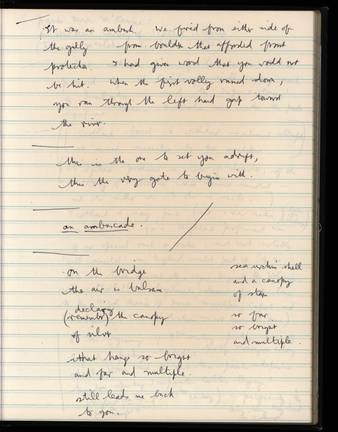 It was an ambush. We fired from either side of
the gully from boulders that afforded front
protection. I had given word that you would not
be hit. When the first volley rained down,
you ran through the left hand gap toward
the river.
this is the one to set you adrift,
this the very gate to begin with.
an ambuscade.
on the bridge
the air is balsam
declaring
(remember) the canopy
of
that hangs so bright
and far and multiple.
still leads me back
to you.
sea urchin shell
and a canopy
of
so far
so bright
and multiple.